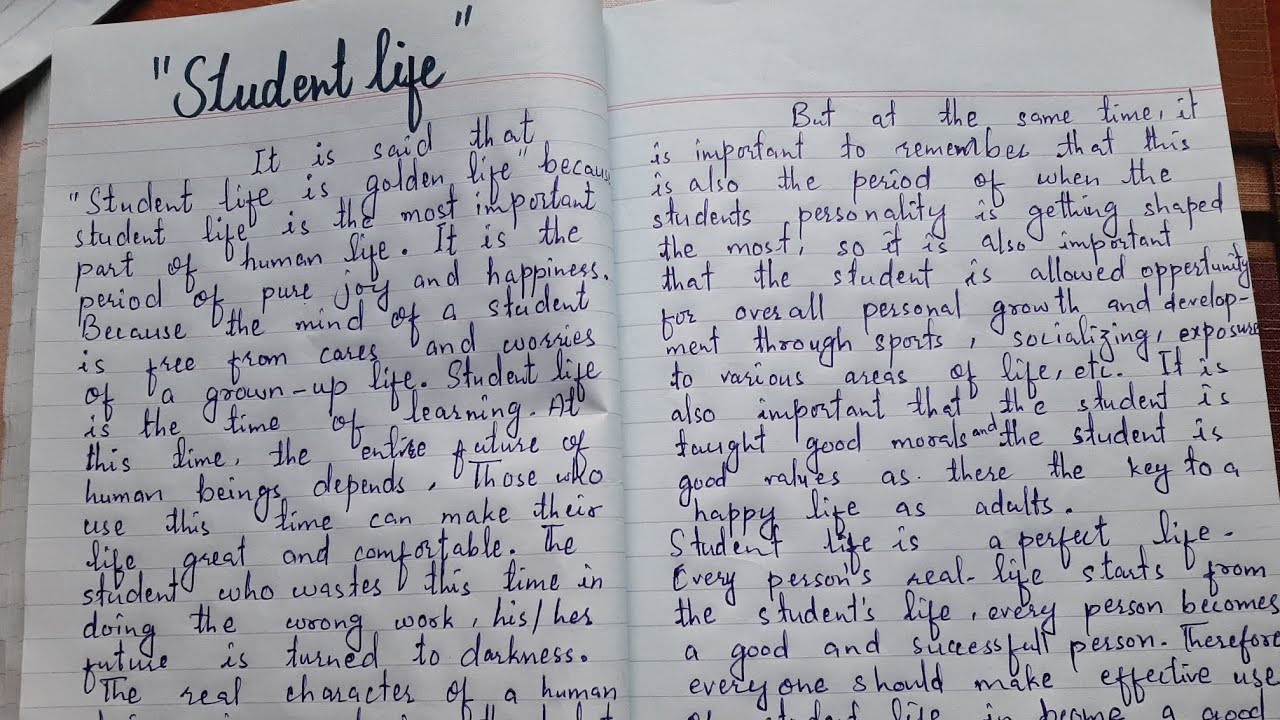 "Student life"
It is said that
"Student life is golden life" because
student life is the most important
part of human life. It is the
period of pure joy and happiness.
Because the mind of a student
is free from cares and worries
of a grown-up life. Student life
is the time of learning. At
this time, the entire future of
human beings depends, Those who
use this time can make their
life great and comfortable. The
student who wastes this time in
doing the wrong work, his/her
future is turned to darkness.
The real character of a human
But at the same time, it
is important to remember that this
is also the period of when the
students personality is getting shaped
the most, so it is also important
that the student is allowed opportunity
for overall personal growth and develop-
ment through sports, socializing, exposure
to various areas of life, etc. It is
also important that the student is
taught good morals and the student is
good values as. there the key to a
happy life as adults.
Student life is a perfect life.
Every person's real-life starts from
the student's life, every person becomes
a good and successfull person. Therefore
everyone should make effective use
student life in become a good